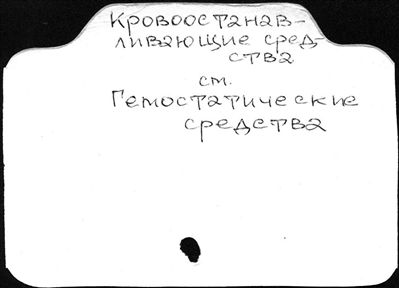 Кровоостанав-
ливающие сред-
ства
см.
Гемостатические
средства